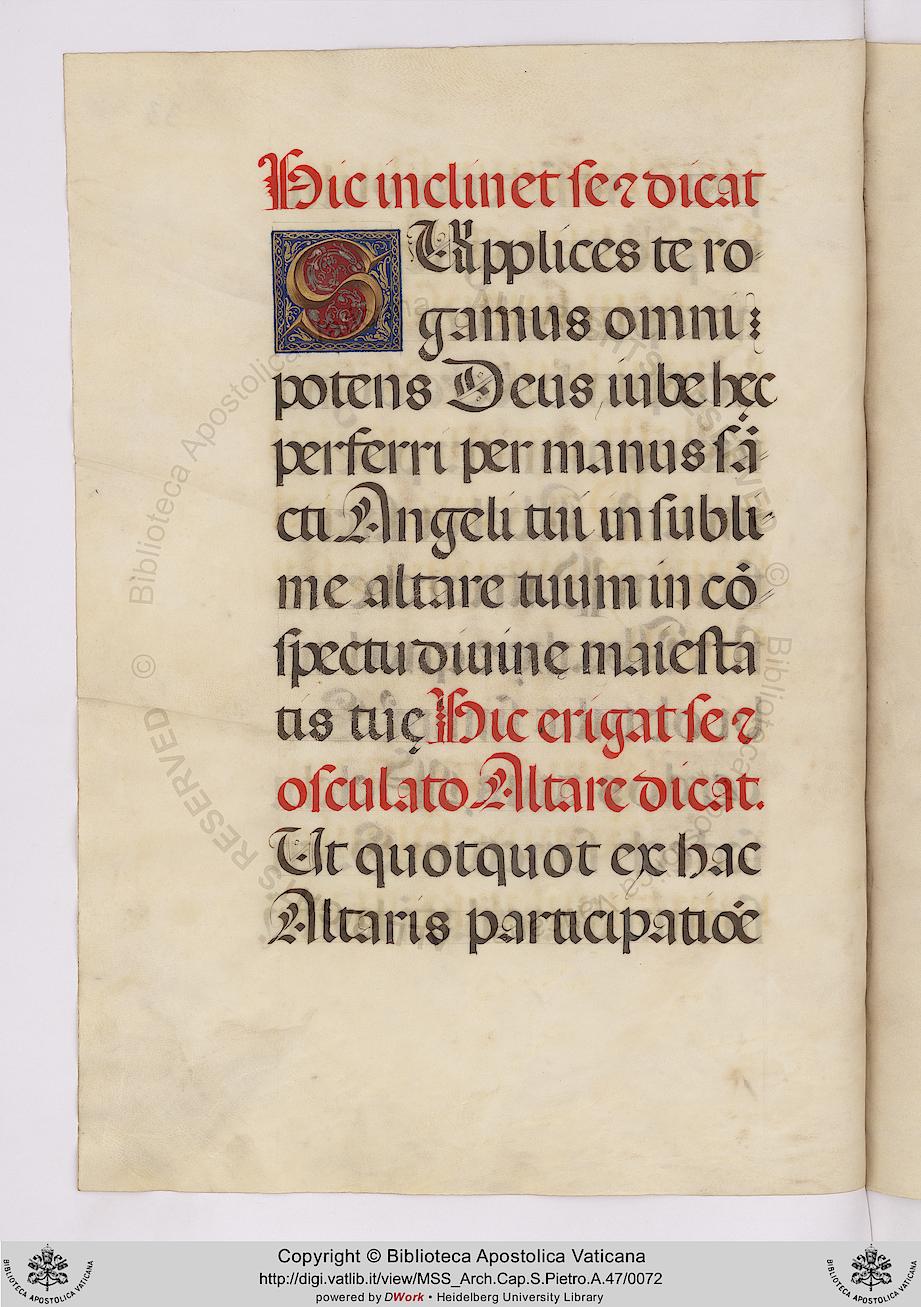 Hic inclinet se ⁊ dicat
SUpplices te ro-
gamus omni⁝
potens Deus iube hęc
perferri per manus sā-
cti Angeli tui in subli-
me altare tuum in cō-
spectu diuinę maiesta
tis tuę Hic erigat se ⁊
osculato Altare dicat.
Ut quotquot ex hac
Altaris participatiōe
© Biblioteca Apostolica
© Biblioteca Apostolica Va
RESERVED
Copyright © Biblioteca Apostolica Vaticana
http://digi.vatlib.it/view/MSS_Arch.Cap.S.Pietro.A.47/0072
powered by DWork • Heidelberg University Library
BIBLIOTECA APOSTOLICA VATICANA
BIBLIOTECA APOSTOLICA VATICANA